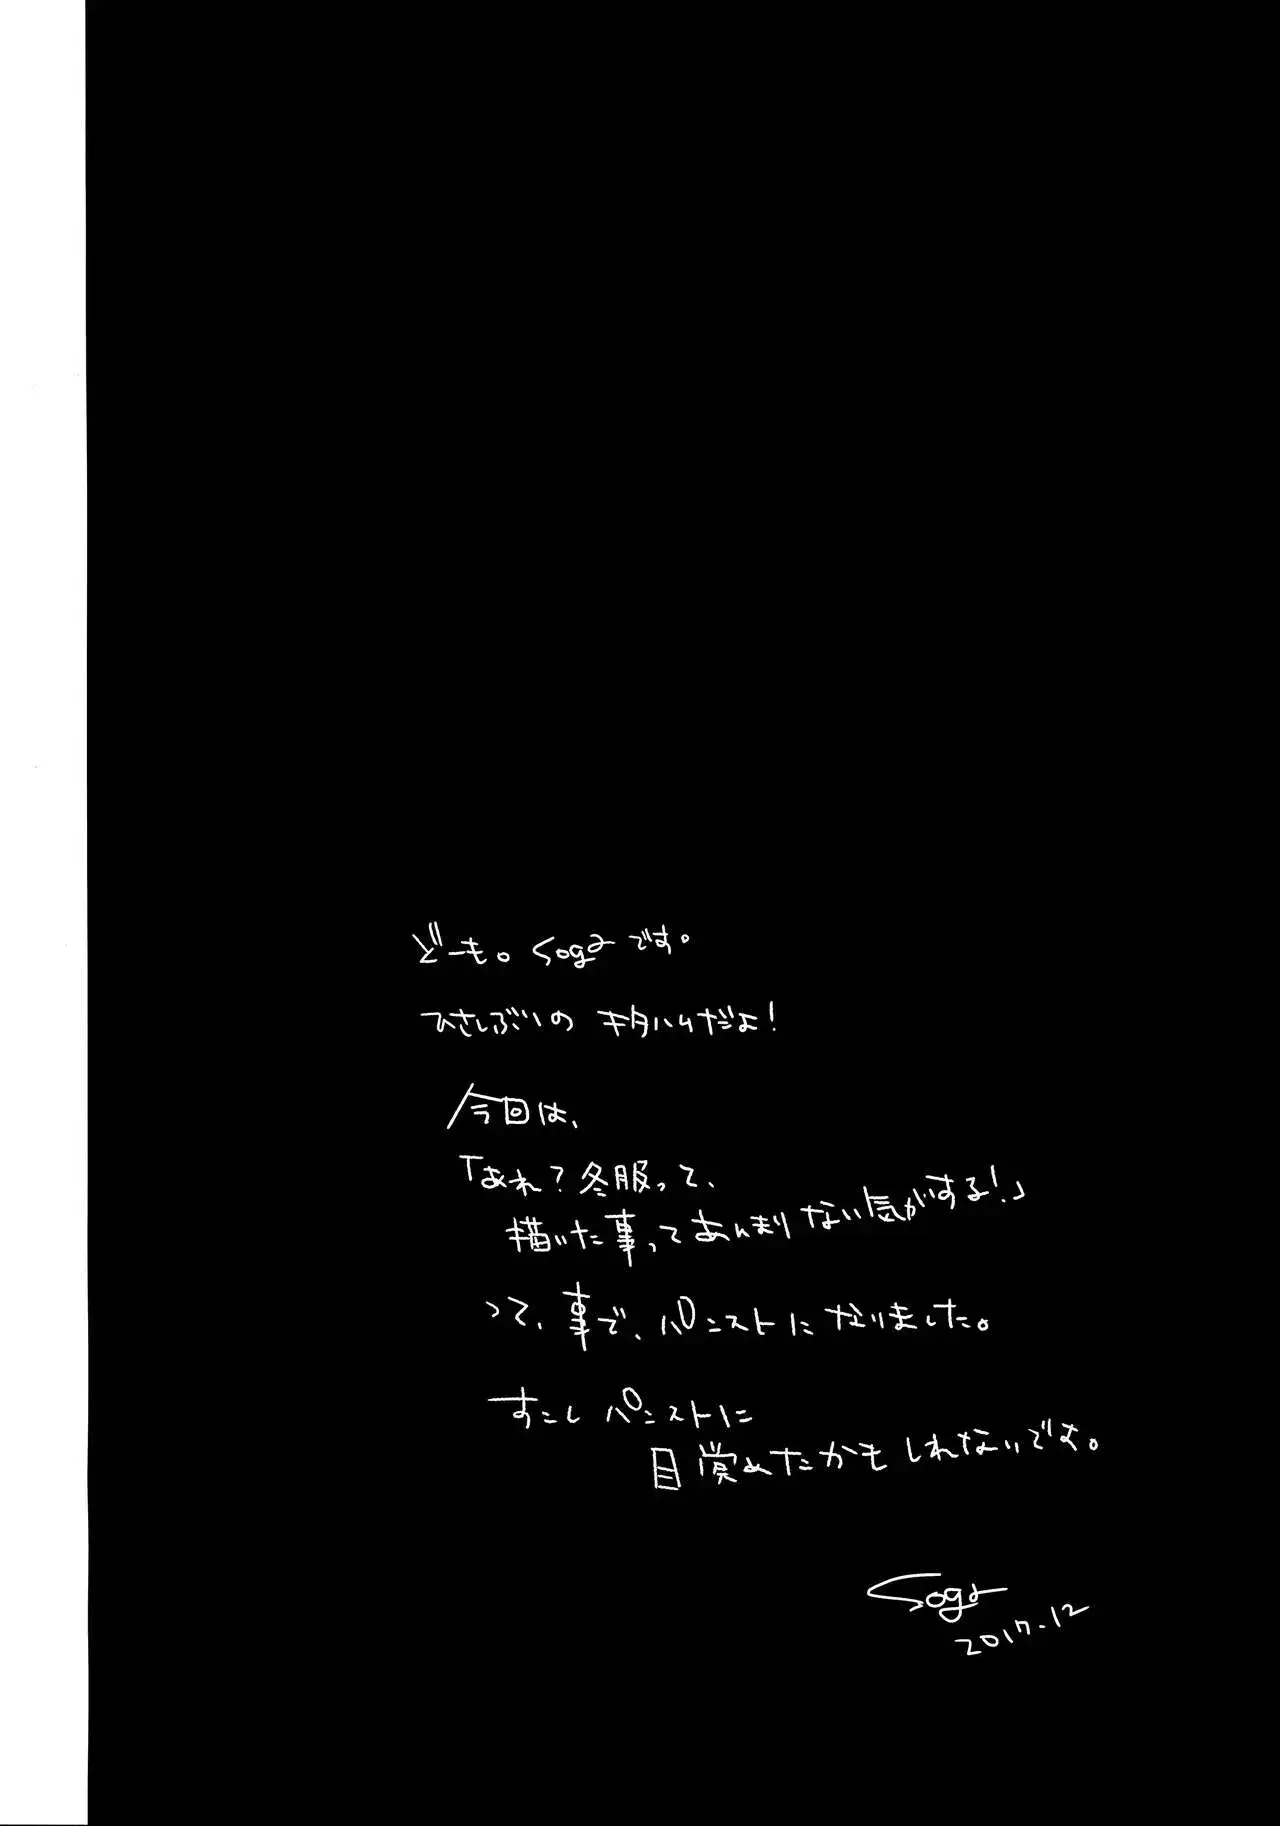 どーも。Sogaです。
ひさしぶりの キタハムだよ!
今回は、
「あれ?冬服って、
描いた事ってあんまりない気がする!」
って、事で、パンストになりました。
すこしパンストに
目覚めたかもしれないです。
Soga
2017.12